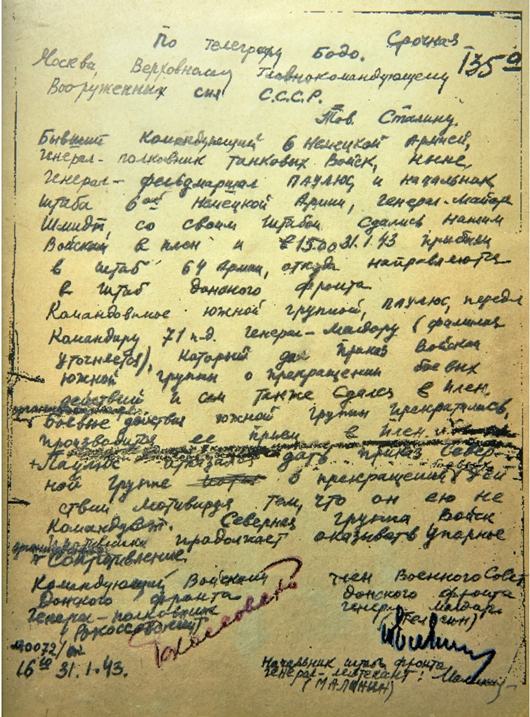 По телеграфу Бодо. Срочная
135°
Москва, Верховному Главнокомандующему
Вооруженных сил С.С.С.Р.
Тов Сталину.
Бывший Командующий 6 Немецкой Армией,
генерал-полковник танковых Войск, ныне
генерал-фельдмаршал ПАУЛЮС и начальник
штаба 6ой Немецкой Армии, генерал-майор
Шмидт, со своим штабом сдались нашим
Войскам в плен и в 1500 31.1.43 прибыли
в штаб 64 Армии, откуда направляются
в штаб донского фронта
Командование южной группой, ПАУЛЮС, передал
Командиру 71 п.д. генерал-майору (фамилия
уточняется), который дал приказ Войскам
южной группы о прекращении боевых
действий и сам также сдался в плен.
Боевые действия южной группы прекратились,
производится ее прием в плен
Паулюс отказался дать приказ Север-
ной группе о прекращении дей
ствий мотивируя тем, что он ею не
Командует. Северная группа Войск
противника продолжает оказывать упорное
Сопротивление
Командующий Войсками
Донского фронта
Генерал-полковник
(Рокоссовский)
Рокоссовск
член Военного Совета
донского фронта
генерал майор
(Телегин)
№0072/
1640 31.1.43.
Начальник штаба фронта
генерал-лейтенант: Малинин
(МАЛИНИН)